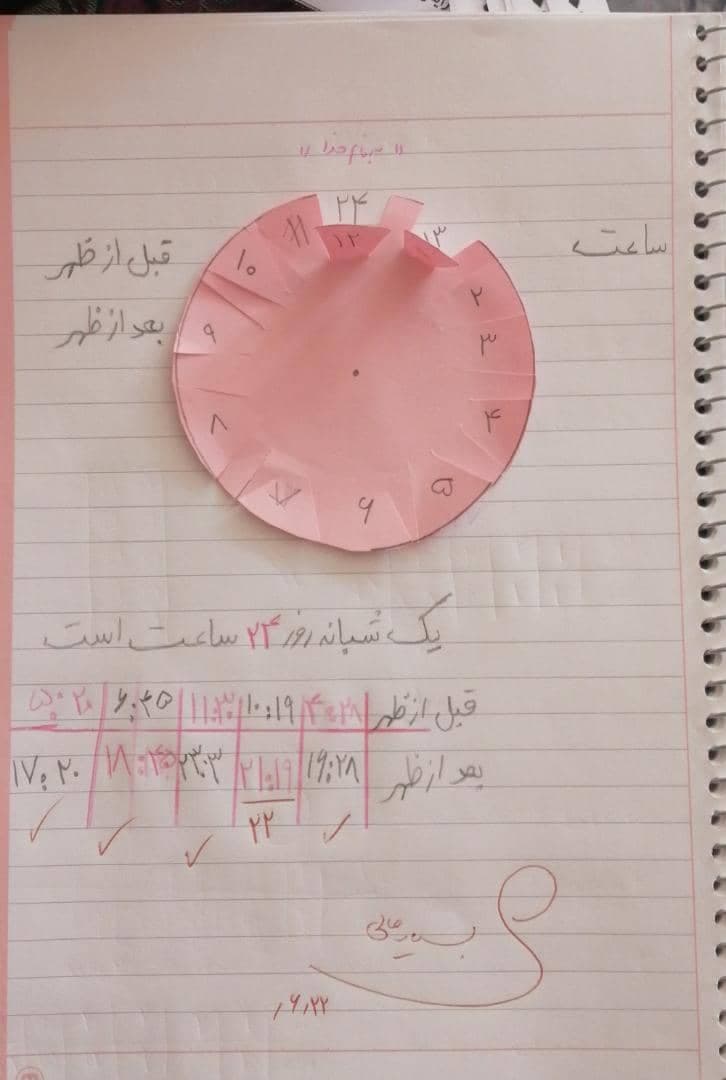 " بنام خدا "
ساعت
قبل از ظهر
بعد از ظهر
۲۴
۱۲
۱۳
۲
۳
۴
۵
۶
۷
۸
۹
۱۰
۱۱
یک شبانه روز ۲۴ ساعت است
قبل از ظهر ۷:۲۸ ۱۰:۱۹ ۱۱:۳۰ ۶:۴۵ ۵:۲۰
بعد از ظهر ۱۹:۲۸ ۲۱:۱۹ ۲۳:۳۰ ۱۸:۴۵ ۱۷:۲۰
۲۲
بسیار عالی
۶٫۲۲